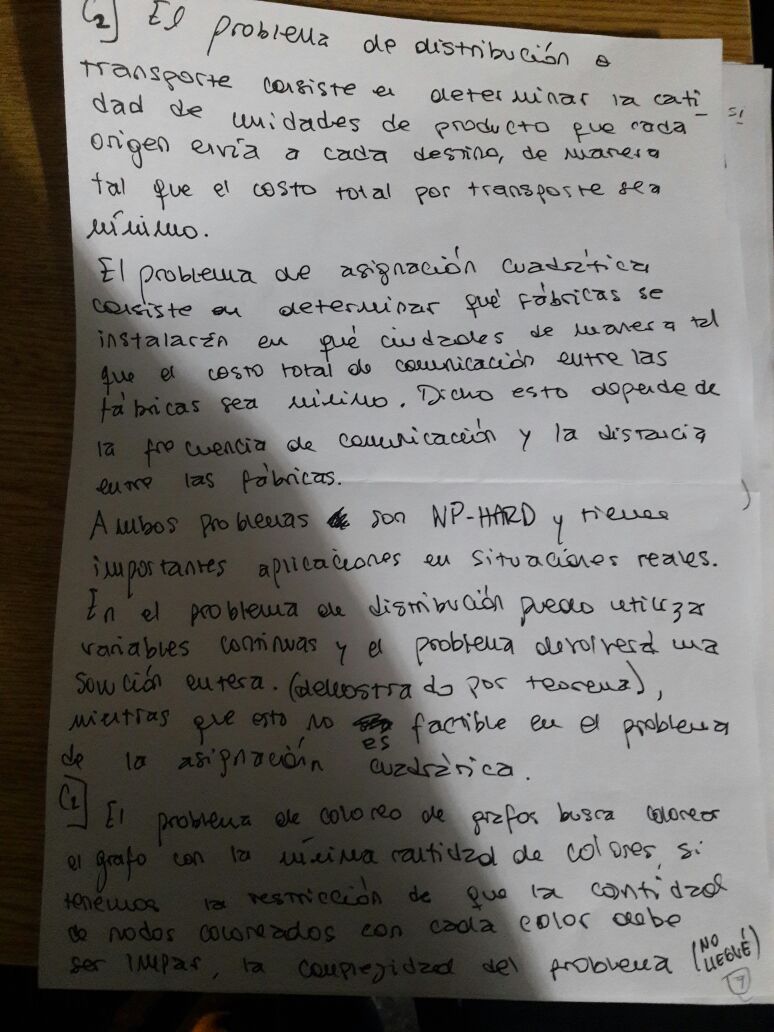 C2] El problema de distribución o
transporte consiste en determinar la cati
dad de unidades de producto que cada
origen envía a cada destino, de manera
tal que el costo total por transporte sea
mínimo.
El problema de asignación cuadrática
consiste en determinar qué fábricas se
instalarán en qué ciudades de manera tal
que el costo total de comunicación entre las
fábricas sea mínimo. Dicho esto depende de
la frecuencia de comunicación y la distancia
entre las fábricas.
Ambos problemas son NP-HARD y tienen
importantes aplicaciones en situaciones reales.
En el problema de distribución puedo utilizar
variables continuas y el problema devolverá una
solución entera. (demostrado por teorema),
mientras que esto no es factible en el problema
de la asignación cuadrática.
C2] El problema de coloreo de grafos busca colorear
el grafo con la mínima cantidad de colores, si
tenemos la restricción de que la cantidad
de nodos coloreados con cada color debe
ser IMPAR, la complejidad del problema (NO
LLEGUÉ)
7